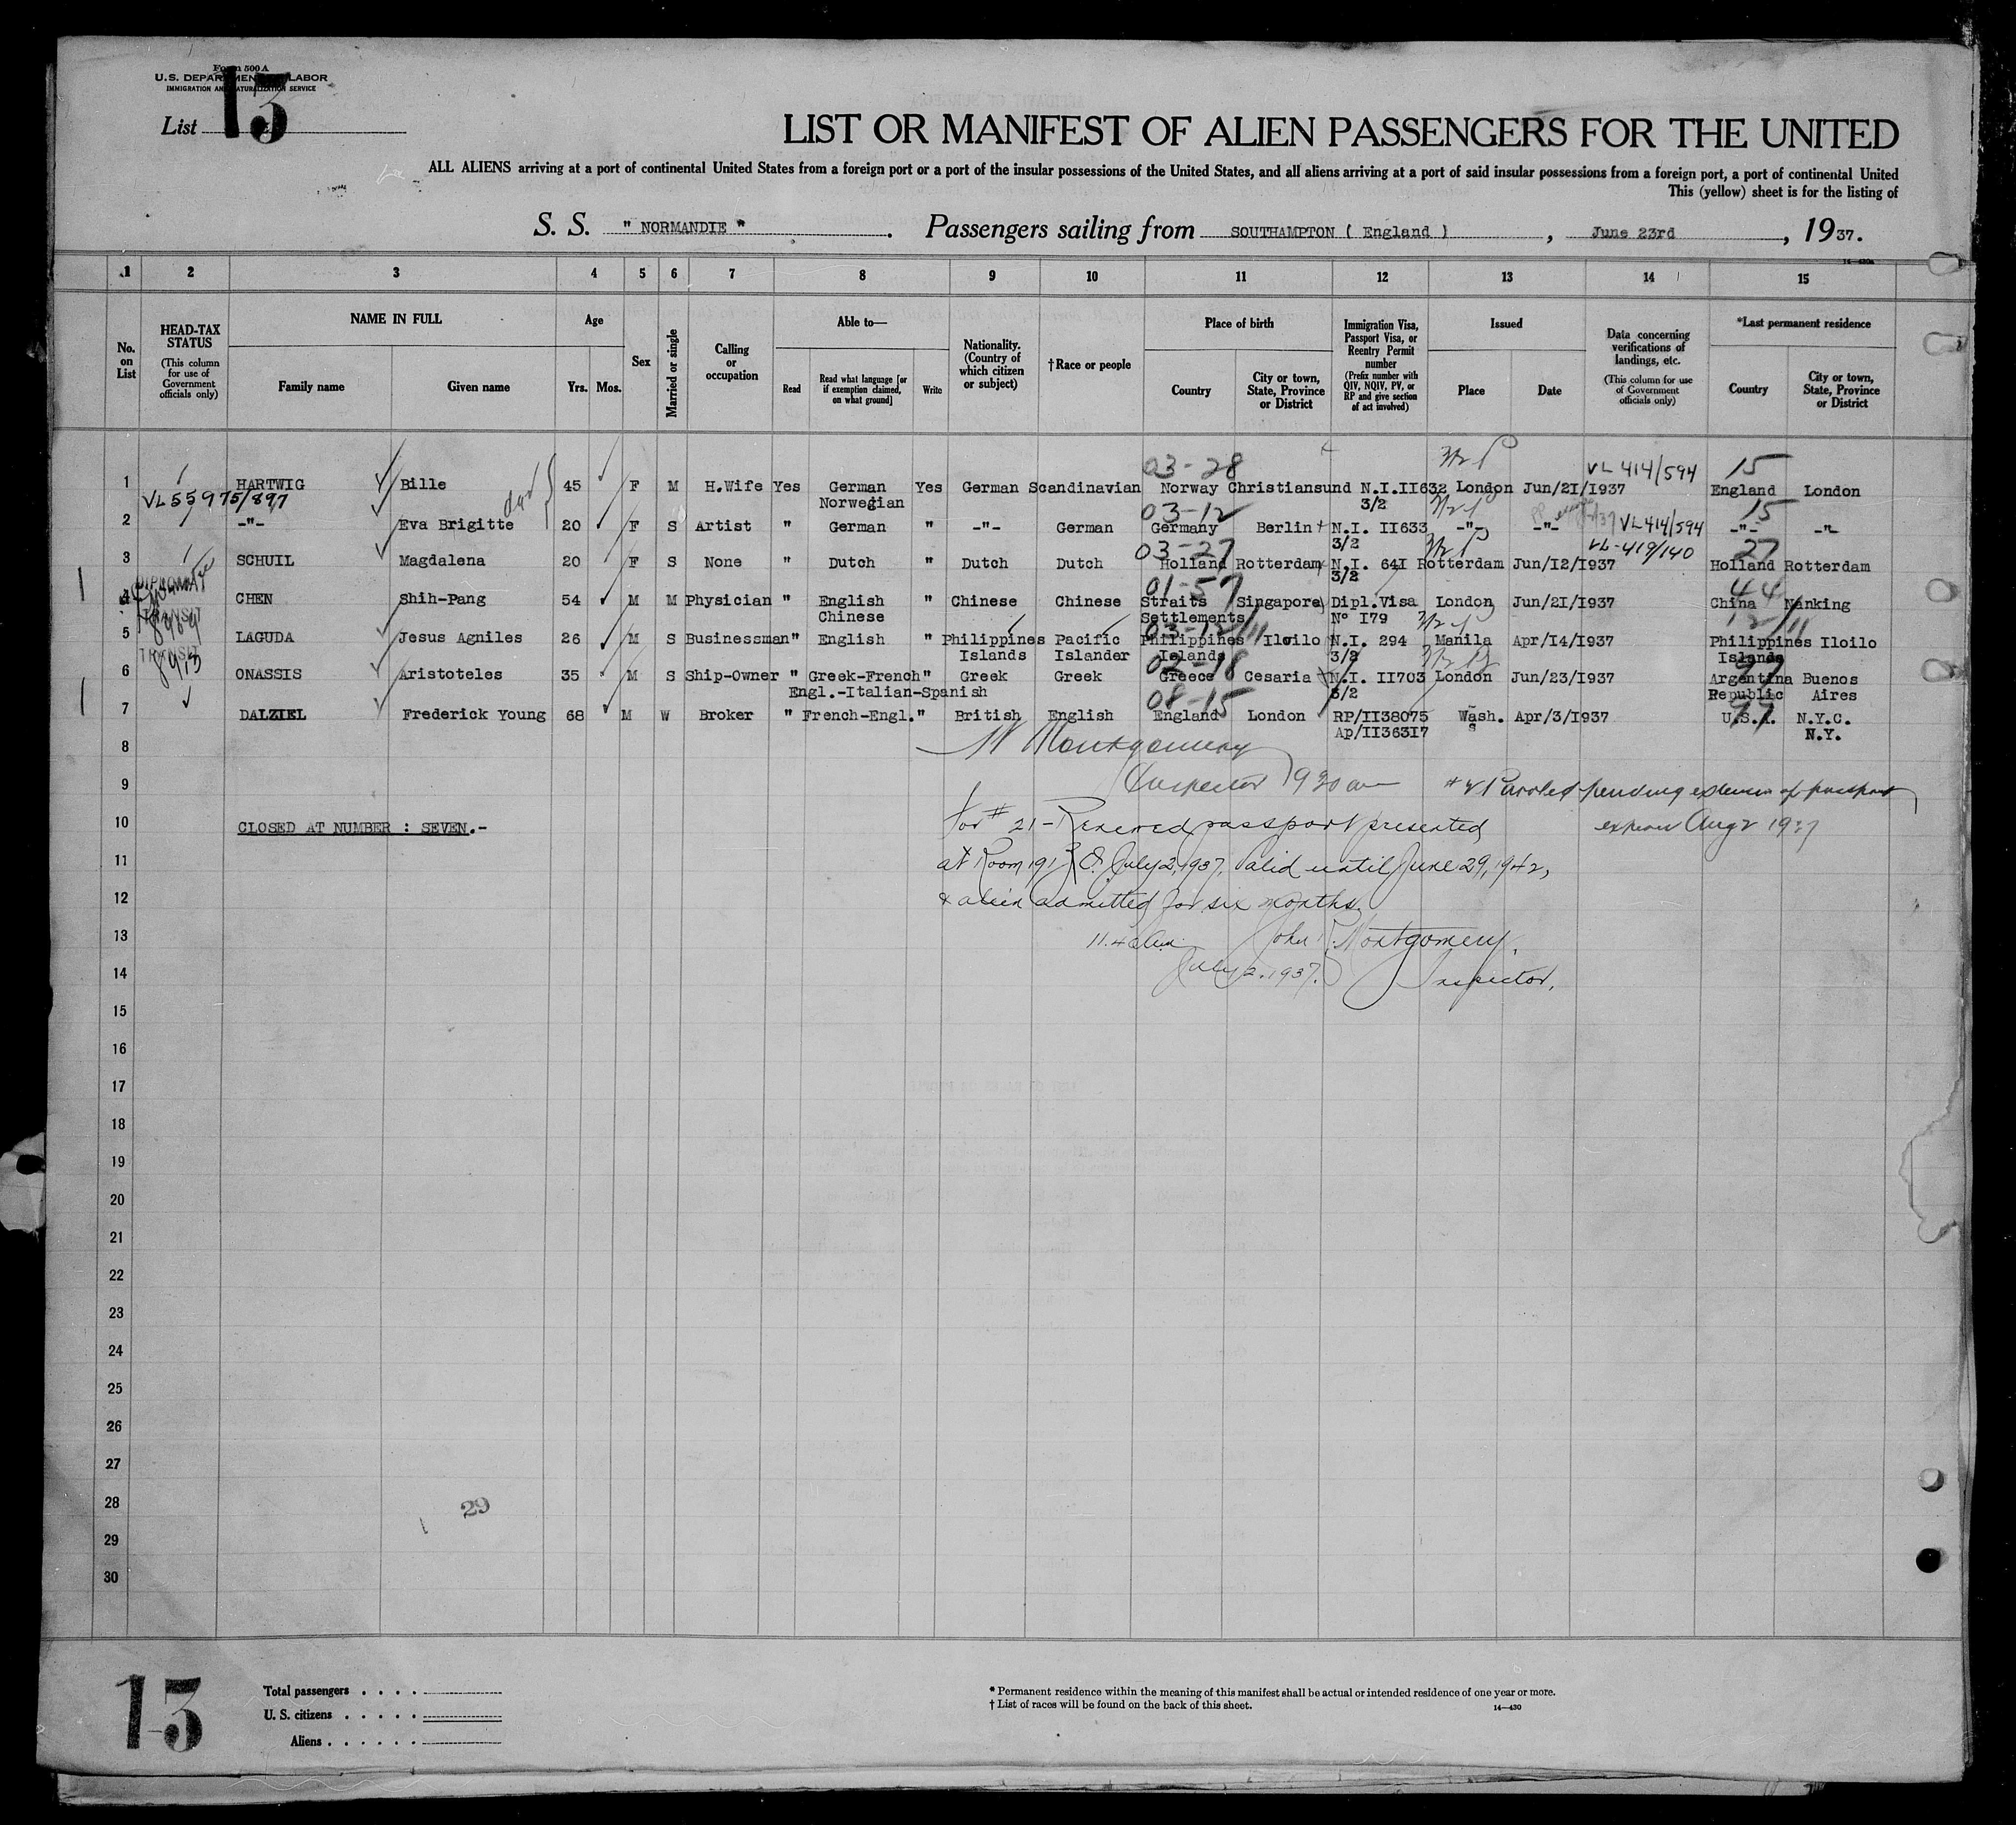 Form 500 A
U.S. DEPARTMENT OF LABOR
IMMIGRATION AND NATURALIZATION SERVICE
List 13
LIST OR MANIFEST OF ALIEN PASSENGERS FOR THE UNITED
ALL ALIENS arriving at a port of continental United States from a foreign port or a port of the insular possessions of the United States, and all aliens arriving at a port of said insular possessions from a foreign port, a port of continental United
This (yellow) sheet is for the listing of
S. S. " NORMANDIE " . Passengers sailing from SOUTHAMPTON ( England ) , June 23rd , 1937.
14—430a
1 2 3 4 5 6 7 8 9 10 11 12 13 14 15
No. on List
HEAD-TAX STATUS (This column for use of Government officials only)
NAME IN FULL Family name Given name
Age Yrs. Mos.
Sex
Married or single
Calling or occupation
Able to— Read Read what language [or if exemption claimed, on what ground] Write
Nationality. (Country of which citizen or subject)
†Race or people
Place of birth Country City or town, State, Province or District
Immigration Visa, Passport Visa, or Reentry Permit number (Prefix number with QIV, NQIV, PV, or RP and give section of act involved)
Issued Place Date
Data concerning verifications of landings, etc. (This column for use of Government officials only)
*Last permanent residence Country City or town, State, Province or District
03-28 VL 414/594 15
1 HARTWIG Bille 45 F M H.Wife Yes German Yes German Scandinavian Norway Christiansund N.I.II632 London Jun/2I/I937 England London
VL55975/897 Norwegian 3/2
03-12 15
2 -"- Eva Brigitte 20 F S Artist " German " -"- German Germany Berlin N.I. II633 -"- -"- VL414/594 -"- -"-
3/2
03-27 VL-419/140 27
3 SCHUIL Magdalena 20 F S None " Dutch " Dutch Dutch Holland Rotterdam N.I. 64I Rotterdam Jun/I2/I937 Holland Rotterdam
3/2
01-57 44
4 CHEN Shih-Pang 54 M M Physician " English " Chinese Chinese Straits Singapore Dipl.Visa London Jun/2I/I937 China Nanking
TRANSIT Chinese Settlements N° I79
03-12/11 12/11
5 LAGUDA Jesus Agniles 26 M S Businessman " English " Philippines Pacific Philippines Iloilo N.I. 294 Manila Apr/I4/I937 Philippines Iloilo
TRANSIT Islands Islander Islands 3/2 Islands
8913 02-18
6 ONASSIS Aristoteles 35 M S Ship-Owner " Greek-French " Greek Greek Greece Cesaria N.I. II703 London Jun/23/I937 Argentina Buenos
Engl.-Italian-Spanish 3/2 Republic Aires
08-15
7 DALZIEL Frederick Young 68 M W Broker " French-Engl. " British English England London RP/II38075 Wash. Apr/3/I937 U.S.A. N.Y.C.
Ap/II363I7 N.Y.
8 Montgomery
9 Inspector 930 am Paroled pending extension of passport
10 CLOSED AT NUMBER : SEVEN.- for # 21 - Renewed passport presented expires Aug 2 1937
11 at Room 191 July 2, 1937, valid until June 29, 1942,
12 & alien admitted for six months.
13 11.40 am John Montgomery.
14 July 2. 1937. Inspector.
15
16
17
18
19
20
21
22
23
24
25
26
27
28
29
29
30
13
Total passengers
U. S. citizens
Aliens
* Permanent residence within the meaning of this manifest shall be actual or intended residence of one year or more.
† List of races will be found on the back of this sheet.
14—430